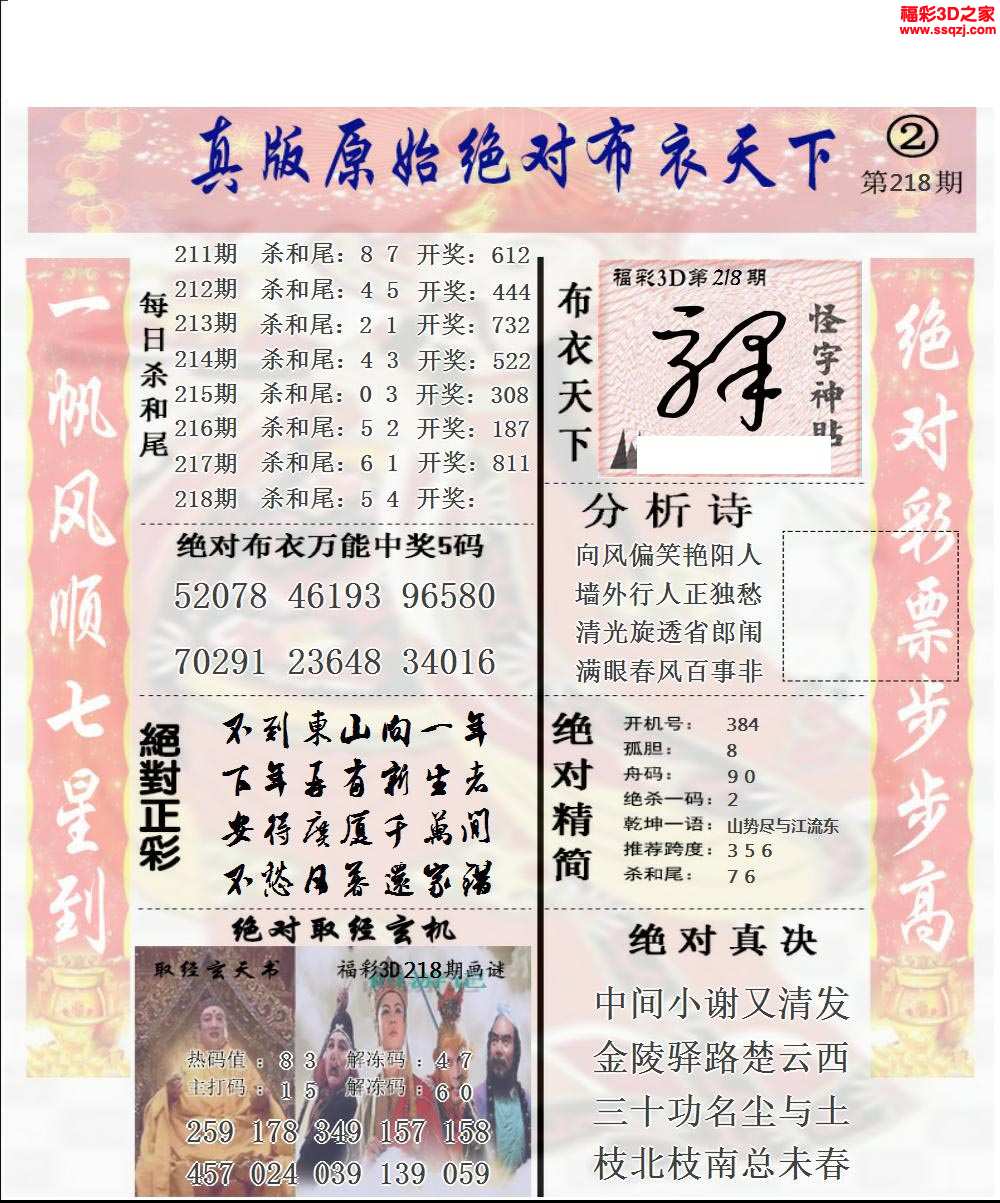 福彩3D之家
www.ssqzj.com
真版原始绝对布衣天下
②
第218期
一帆风顺七星到
每日杀和尾
211期 杀和尾：8 7 开奖：612
212期 杀和尾：4 5 开奖：444
213期 杀和尾：2 1 开奖：732
214期 杀和尾：4 3 开奖：522
215期 杀和尾：0 3 开奖：308
216期 杀和尾：5 2 开奖：187
217期 杀和尾：6 1 开奖：811
218期 杀和尾：5 4 开奖：
绝对布衣万能中奖5码
52078 46193 96580
70291 23648 34016
絕對正彩
不到東山向一年
下年再有新生者
安得廣厦千萬間
不愁日暮還家錯
绝对取经玄机
取经玄天书
福彩3D218期画谜
热码值：8 3 解冻码：4 7
主打码：1 5 解冻码：6 0
259 178 349 157 158
457 024 039 139 059
布衣天下
福彩3D第218期
怪字神贴
分析诗
向风偏笑艳阳人
墙外行人正独愁
清光旋透省郎闱
满眼春风百事非
绝对精简
开机号：384
孤胆：8
舟码：9 0
绝杀一码：2
乾坤一语：山势尽与江流东
推荐跨度：3 5 6
杀和尾：7 6
绝对真决
中间小谢又清发
金陵驿路楚云西
三十功名尘与土
枝北枝南总未春
绝对彩票步步高